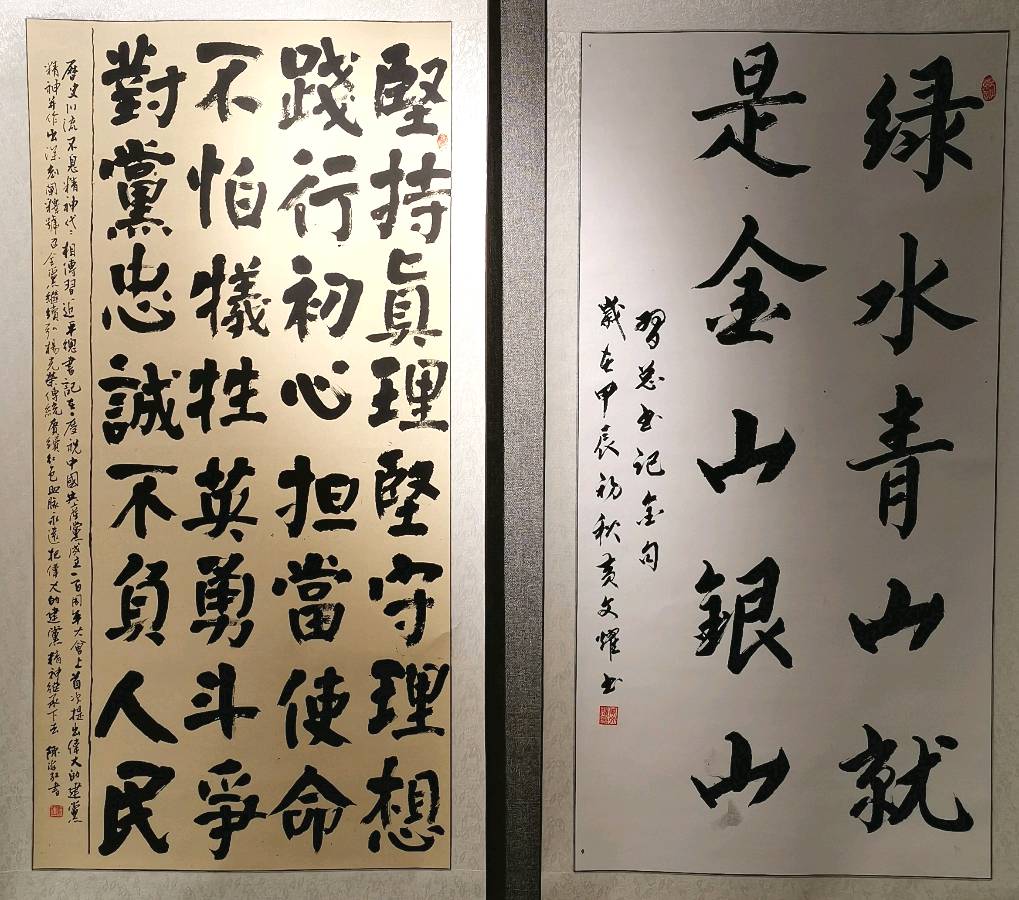 绿水青山就
是金山銀山
習总书记金句
歲在甲辰初秋黄文耀书
堅持眞理堅守理想
踐行初心担當使命
不怕犧牲英勇斗爭
對黨忠誠不負人民
歷史川流不息精神代代相傳習近平總書記在慶祝中國共產黨成立一百周年大會上首次提出偉大的建黨
精神并作出深刻闡釋號召全黨繼續弘揚光榮傳統賡續紅色血脈永遠把偉大的建黨精神继承下去